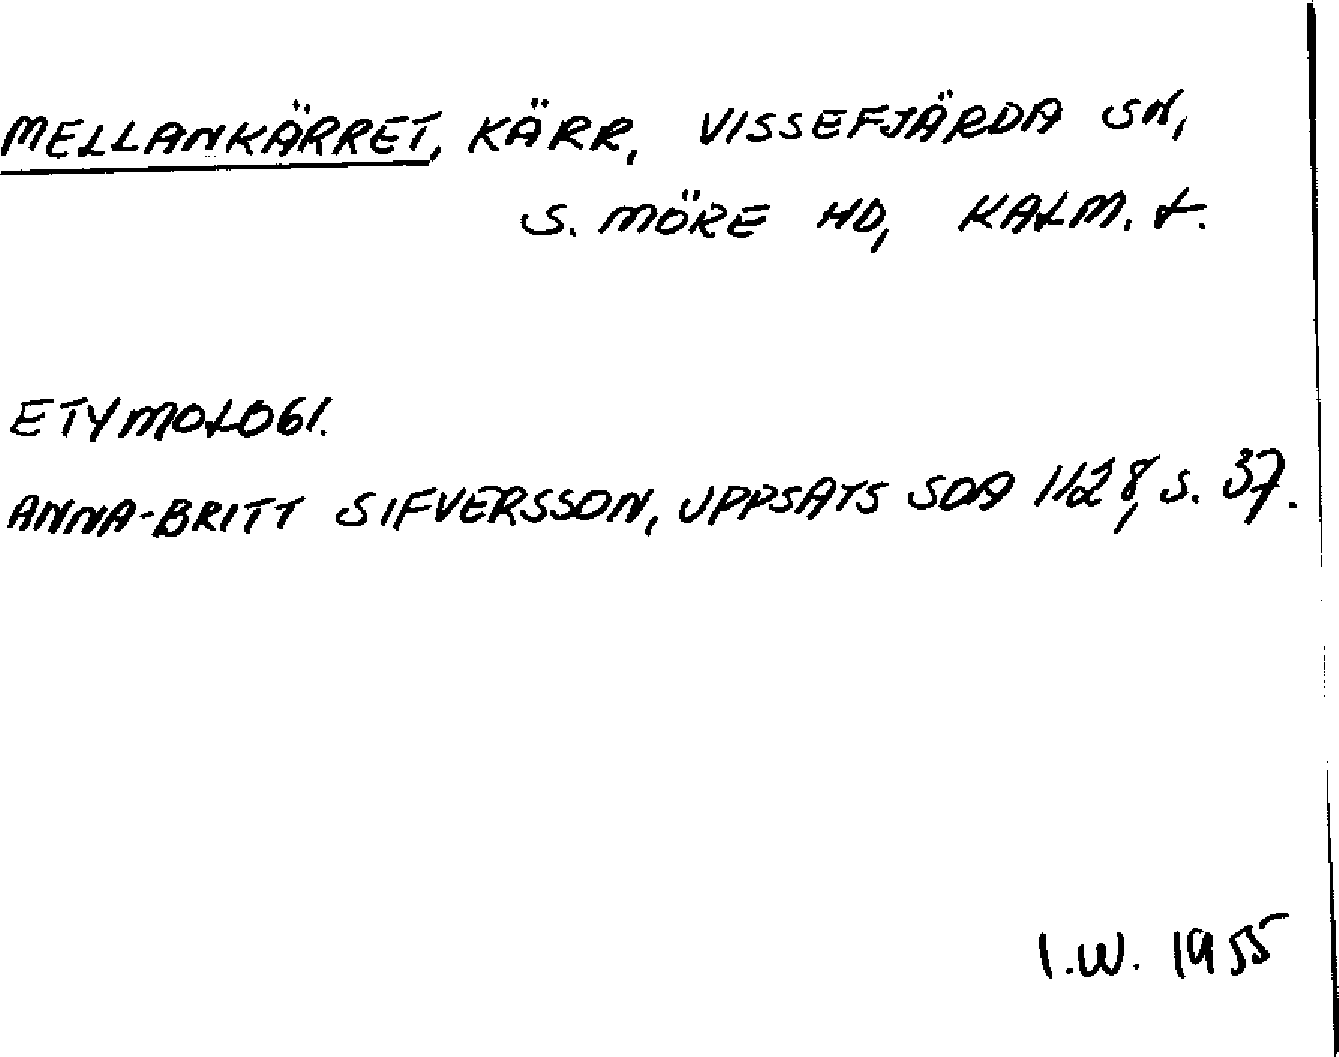 MELLANKÄRRET, KÄRR, VISSEFJÄRDA SN,
S. MÖRE HD, KALM. L.
ETYMOLOGI.
ANNA-BRITT SIFVERSSON, UPPSATS SOA 1128, S. 37.
I.W. 1955